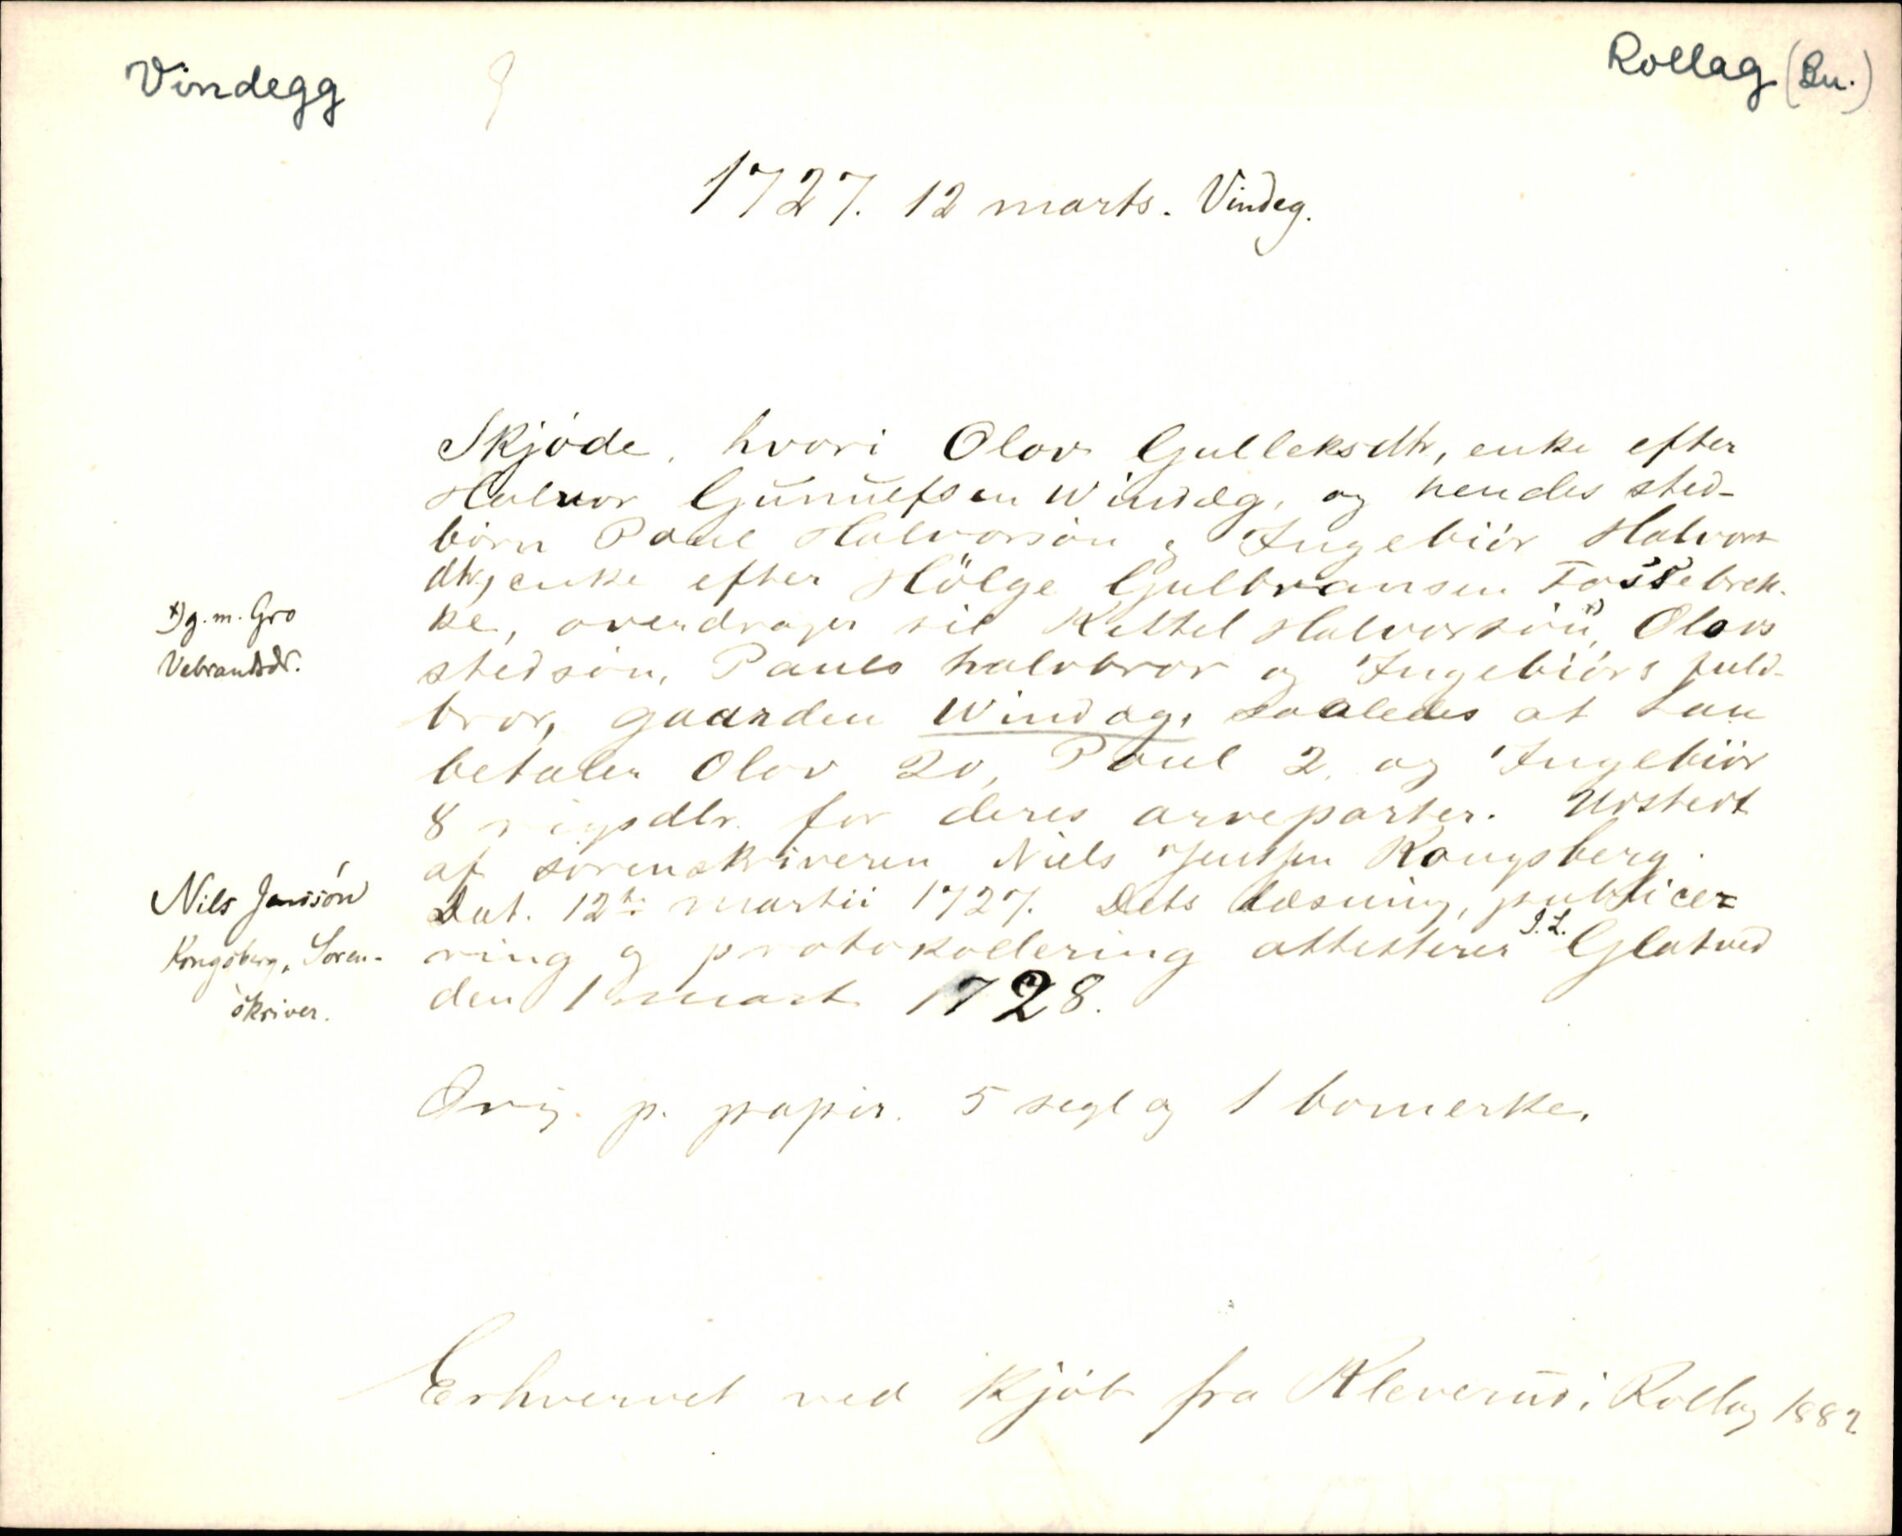 Vindegg
Rollag (Bu.)
1727. 12 marts. Vindeg.
Skjøde, hvori Olov Gulleksdtr, enke efter
Halvor Gunnulfsen Windæg, og hendes sted-
børn Poul Halvorsøn og Ingebiør Halvors-
dtr, enke efter Hölge Gulbransen Fossebrek-
ke, overdrager til Kittel Halvorsøn x), Olovs
stedsøn, Pauls halvbror og Ingebiørs fuld-
bror, gaarden Windæg, saaledes at han
betaler Olov 20, Poul 2, og Ingebiör
8 rigsdlr. for deres arveparter. Utstedt
af sorenskriveren Niels Jensen Kongsberg.
Dat. 12te martii 1727. Dets læsning, publice=
ring og protokollering attesterer J. L. Glatved
den 1 mart 1728.
x) g. m. Gro
Vebrandsdr.
Nils Jenssön
Kongsberg, Soren-
skriver.
Orig. p. papir. 5 segl og 1 bomerke.
Erhvervet ved kjøb fra Kleverud i Rollag 1882